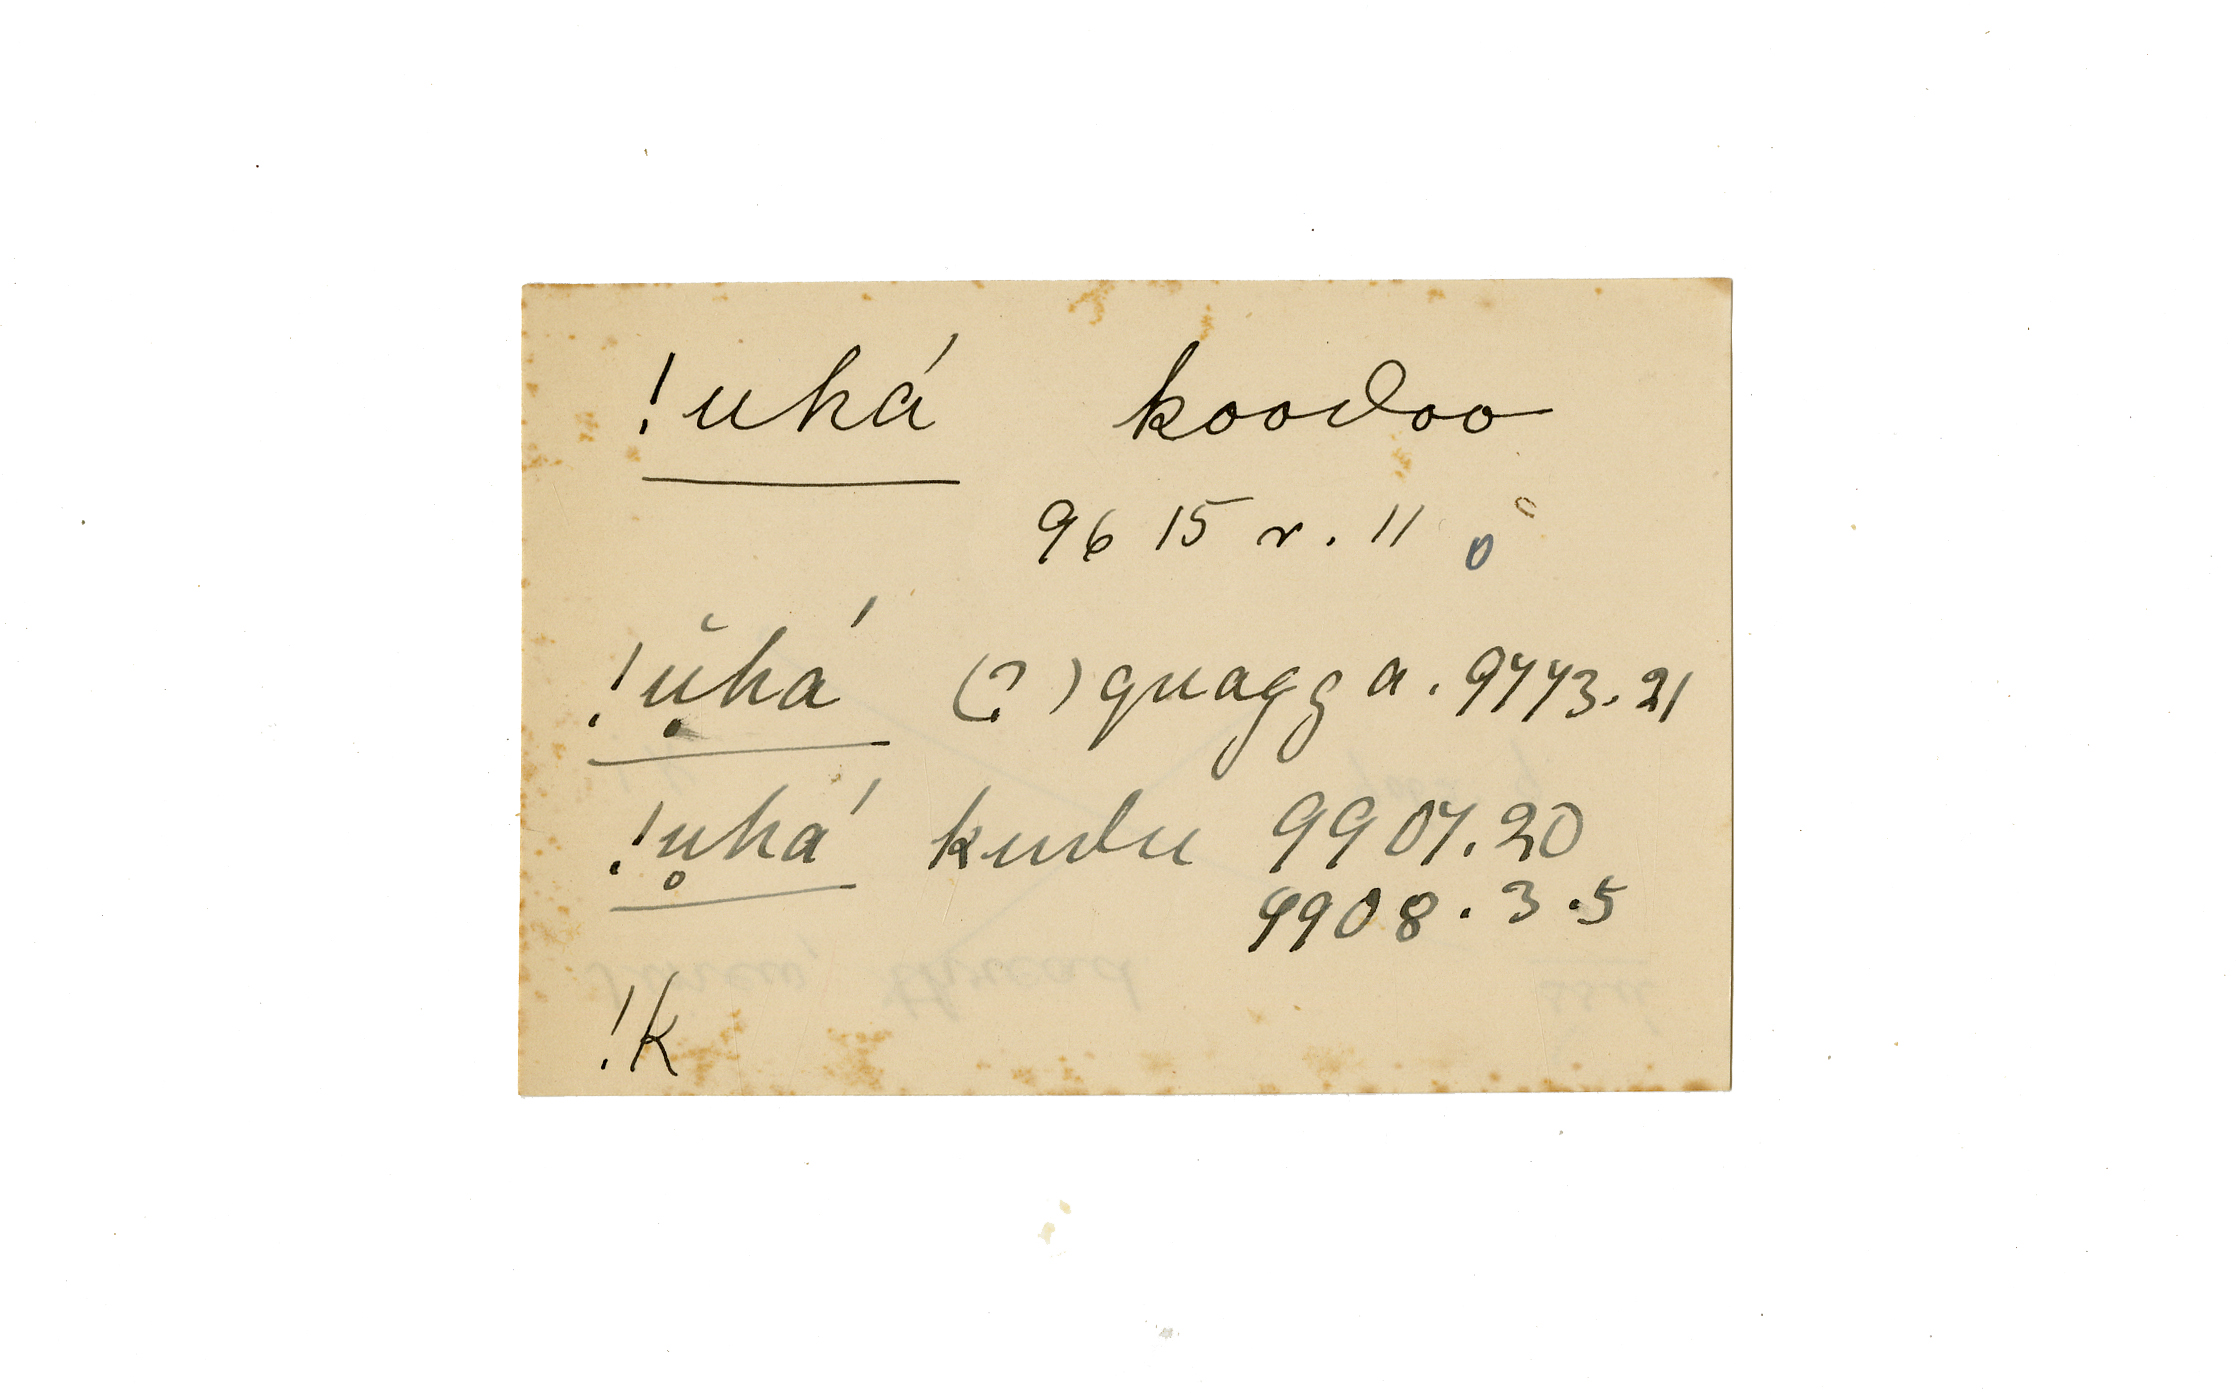 !uhá koodoo
9615 r. 11
!ŭ̥há (?) quagga. 9773.21
!u̥há kudu 9907.20
9908.3.5
!k